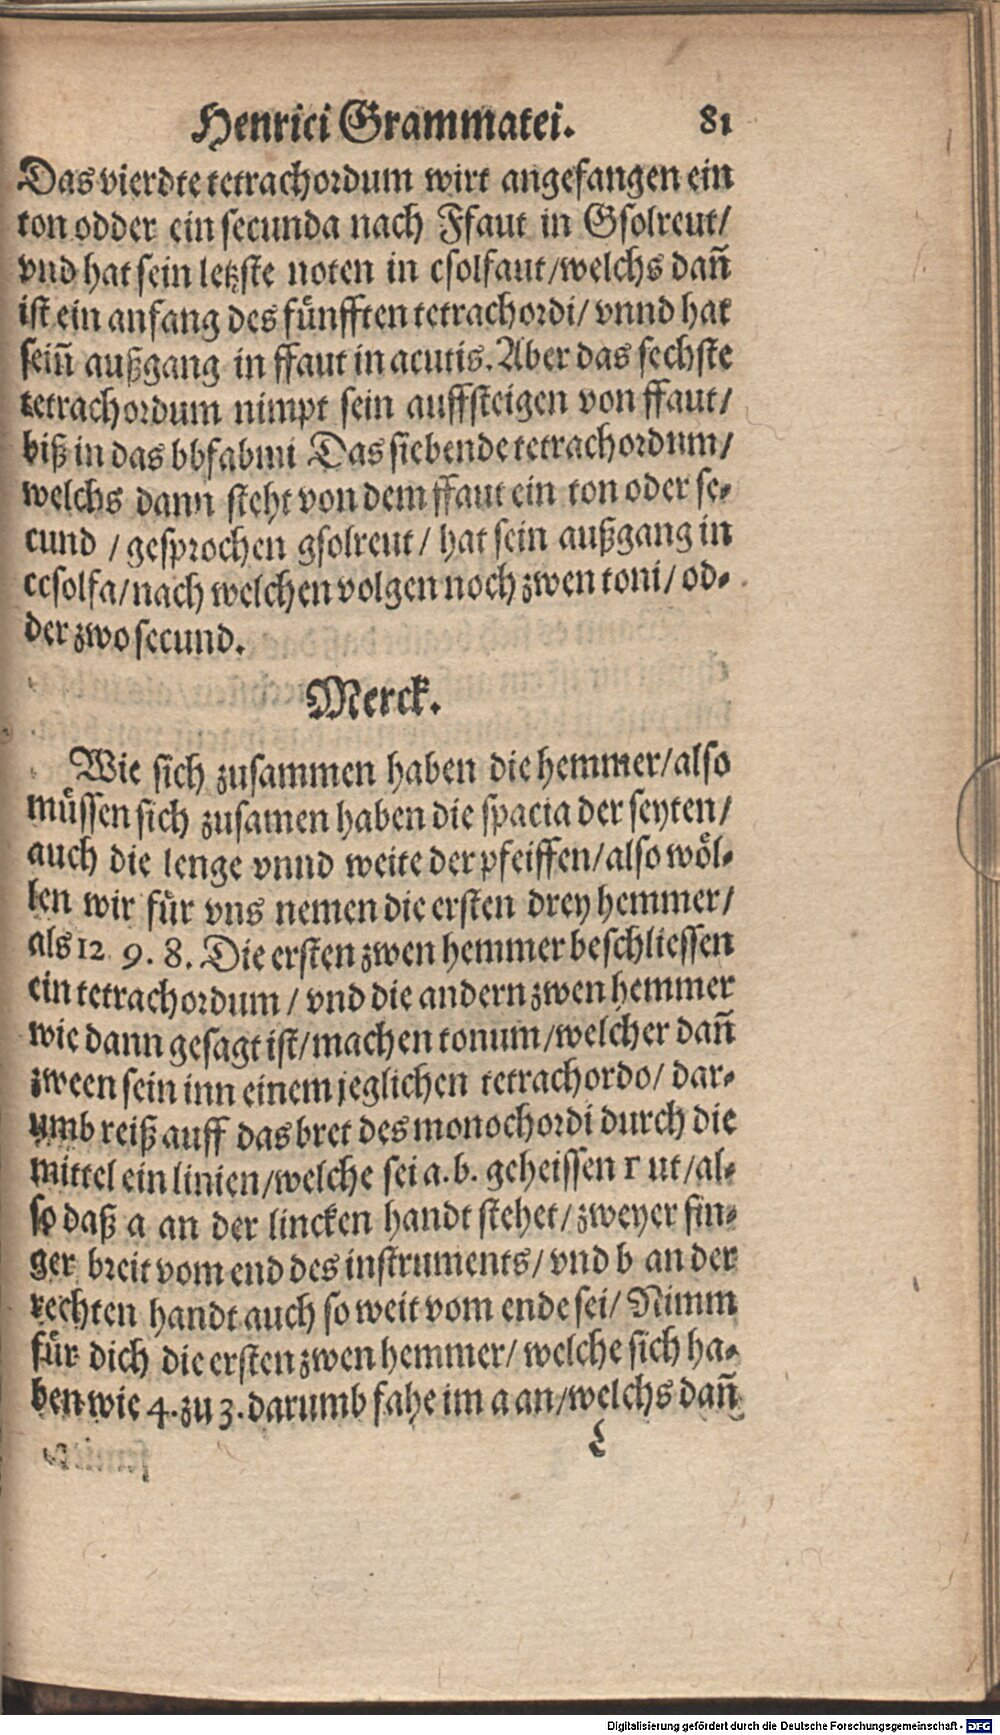 Henrici Grammatei. 81
Das vierdte tetrachordum wirt angefangen ein
ton odder ein secunda nach Ffaut in Gsolreut/
vnd hat sein letzste noten in csolfaut/welchs dañ
ist ein anfang des fünfften tetrachordi/ vnnd hat
seiñ außgang in ffaut in acutis. Aber das sechste
tetrachordum nimpt sein auffsteigen von ffaut/
biß in das bbfabmi Das siebende tetrachordum/
welchs dann steht von dem ffaut ein ton oder se-
cund / gesprochen gsolreut/ hat sein außgang in
ccsolfa/nach welchen volgen noch zwen toni/ od-
der zwo secund.
Merck.
Wie sich zusammen haben die hemmer/also
müssen sich zusamen haben die spacia der seyten/
auch die lenge vnnd weite der pfeiffen/also wöl-
len wir für vns nemen die ersten drey hemmer/
als 12 9. 8. Die ersten zwen hemmer beschliessen
ein tetrachordum / vnd die andern zwen hemmer
wie dann gesagt ist/machen tonum/welcher dañ
zween sein inn einem jeglichen tetrachordo/ dar-
umb reiß auff das bret des monochordi durch die
mittel ein linien/welche sei a.b. geheissen Γ ut/al-
so daß a an der lincken handt stehet/ zweyer fin-
ger breit vom end des instruments/ vnd b an der
rechten handt auch so weit vom ende sei/ Nimm
für dich die ersten zwen hemmer/ welche sich ha-
ben wie 4. zu 3. darumb fahe im a an/welchs dañ
L
Digitalisierung gefördert durch die Deutsche Forschungsgemeinschaft - DFG